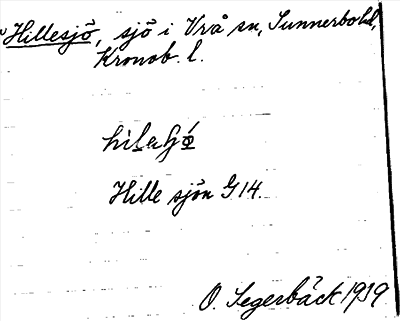 Hillesjö, sjö i Vrå sn, Sunnerbo hd,
Kronob. l.
Hille sjön G14.
O. Segerbäck 1919